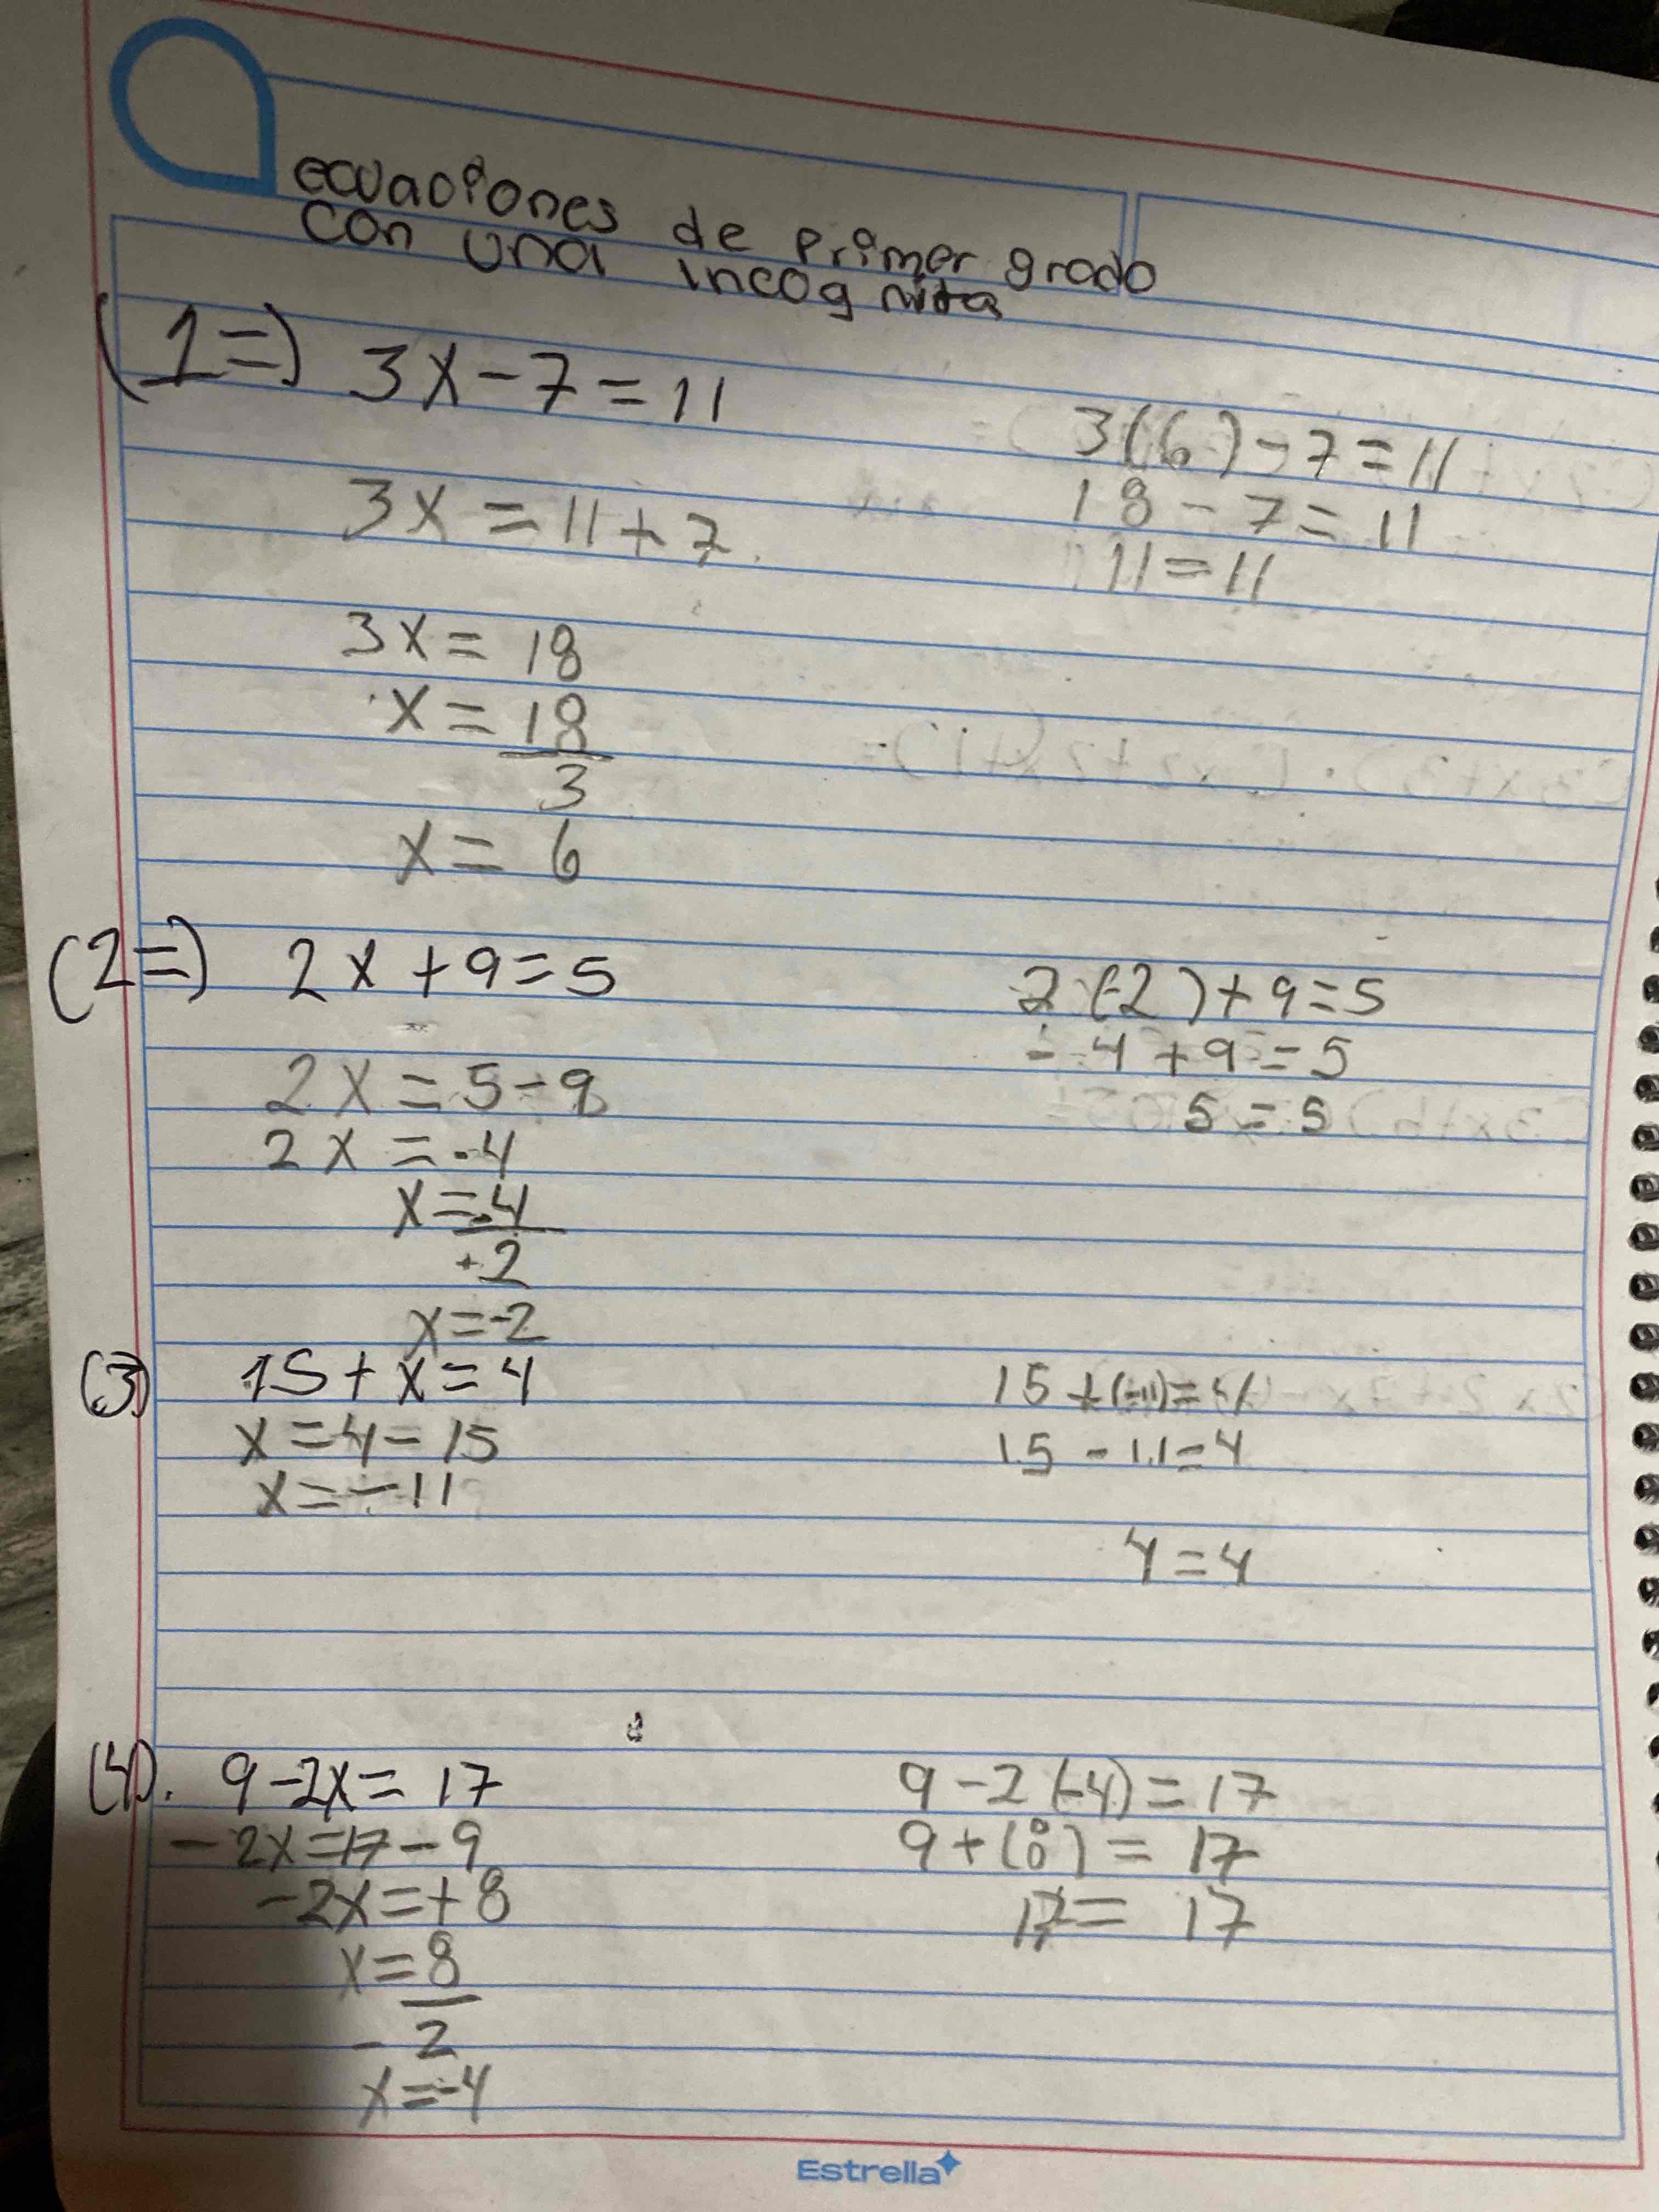 ecuaciones de primer grado
con una incognita
(1=) 3x-7=11
3x=11+7
3x=18
x=18
3
x=6
3(6)-7=11
18-7=11
11=11
(2=) 2x+9=5
2x=5-9
2x=-4
x=-4
+2
x=-2
2(-2)+9=5
-4+9=5
5=5
(3) 15+x=4
x=4-15
x=-11
15+(-11)=4
15-11=4
4=4
(4). 9-2x=17
-2x=17-9
-2x=+8
x=8
-2
x=-4
9-2(-4)=17
9+(8)=17
17=17
Estrella